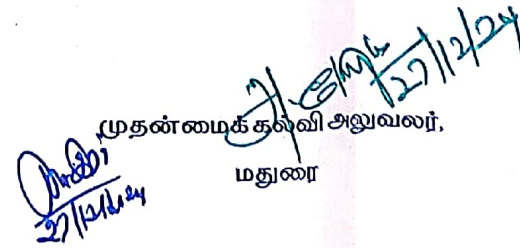 27/12/24
முதன்மைக் கல்வி அலுவலர்,
மதுரை
27/12/24